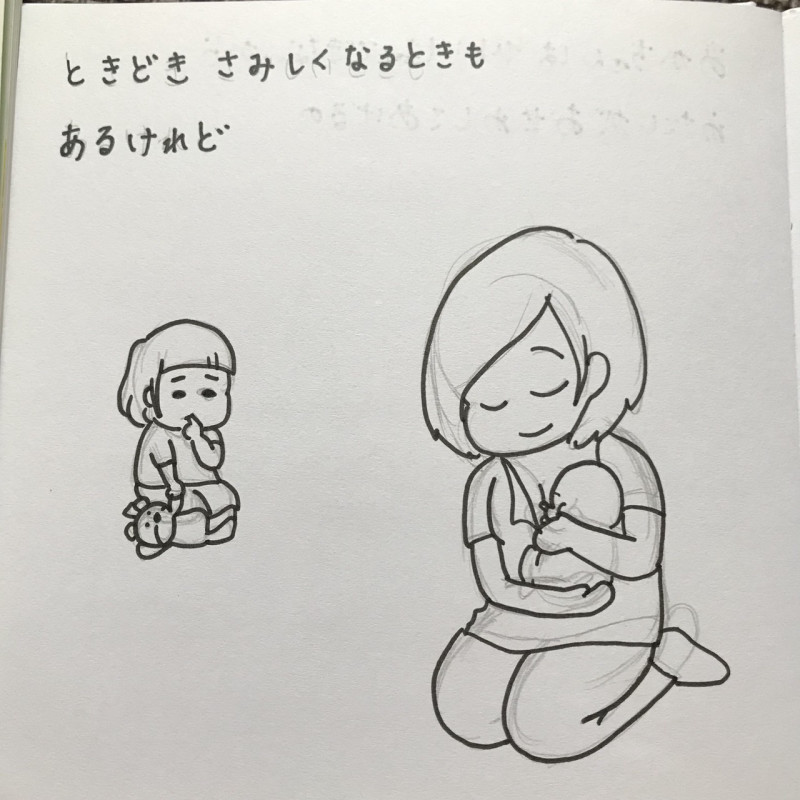 ときどき さみしくなるときも
あるけれど